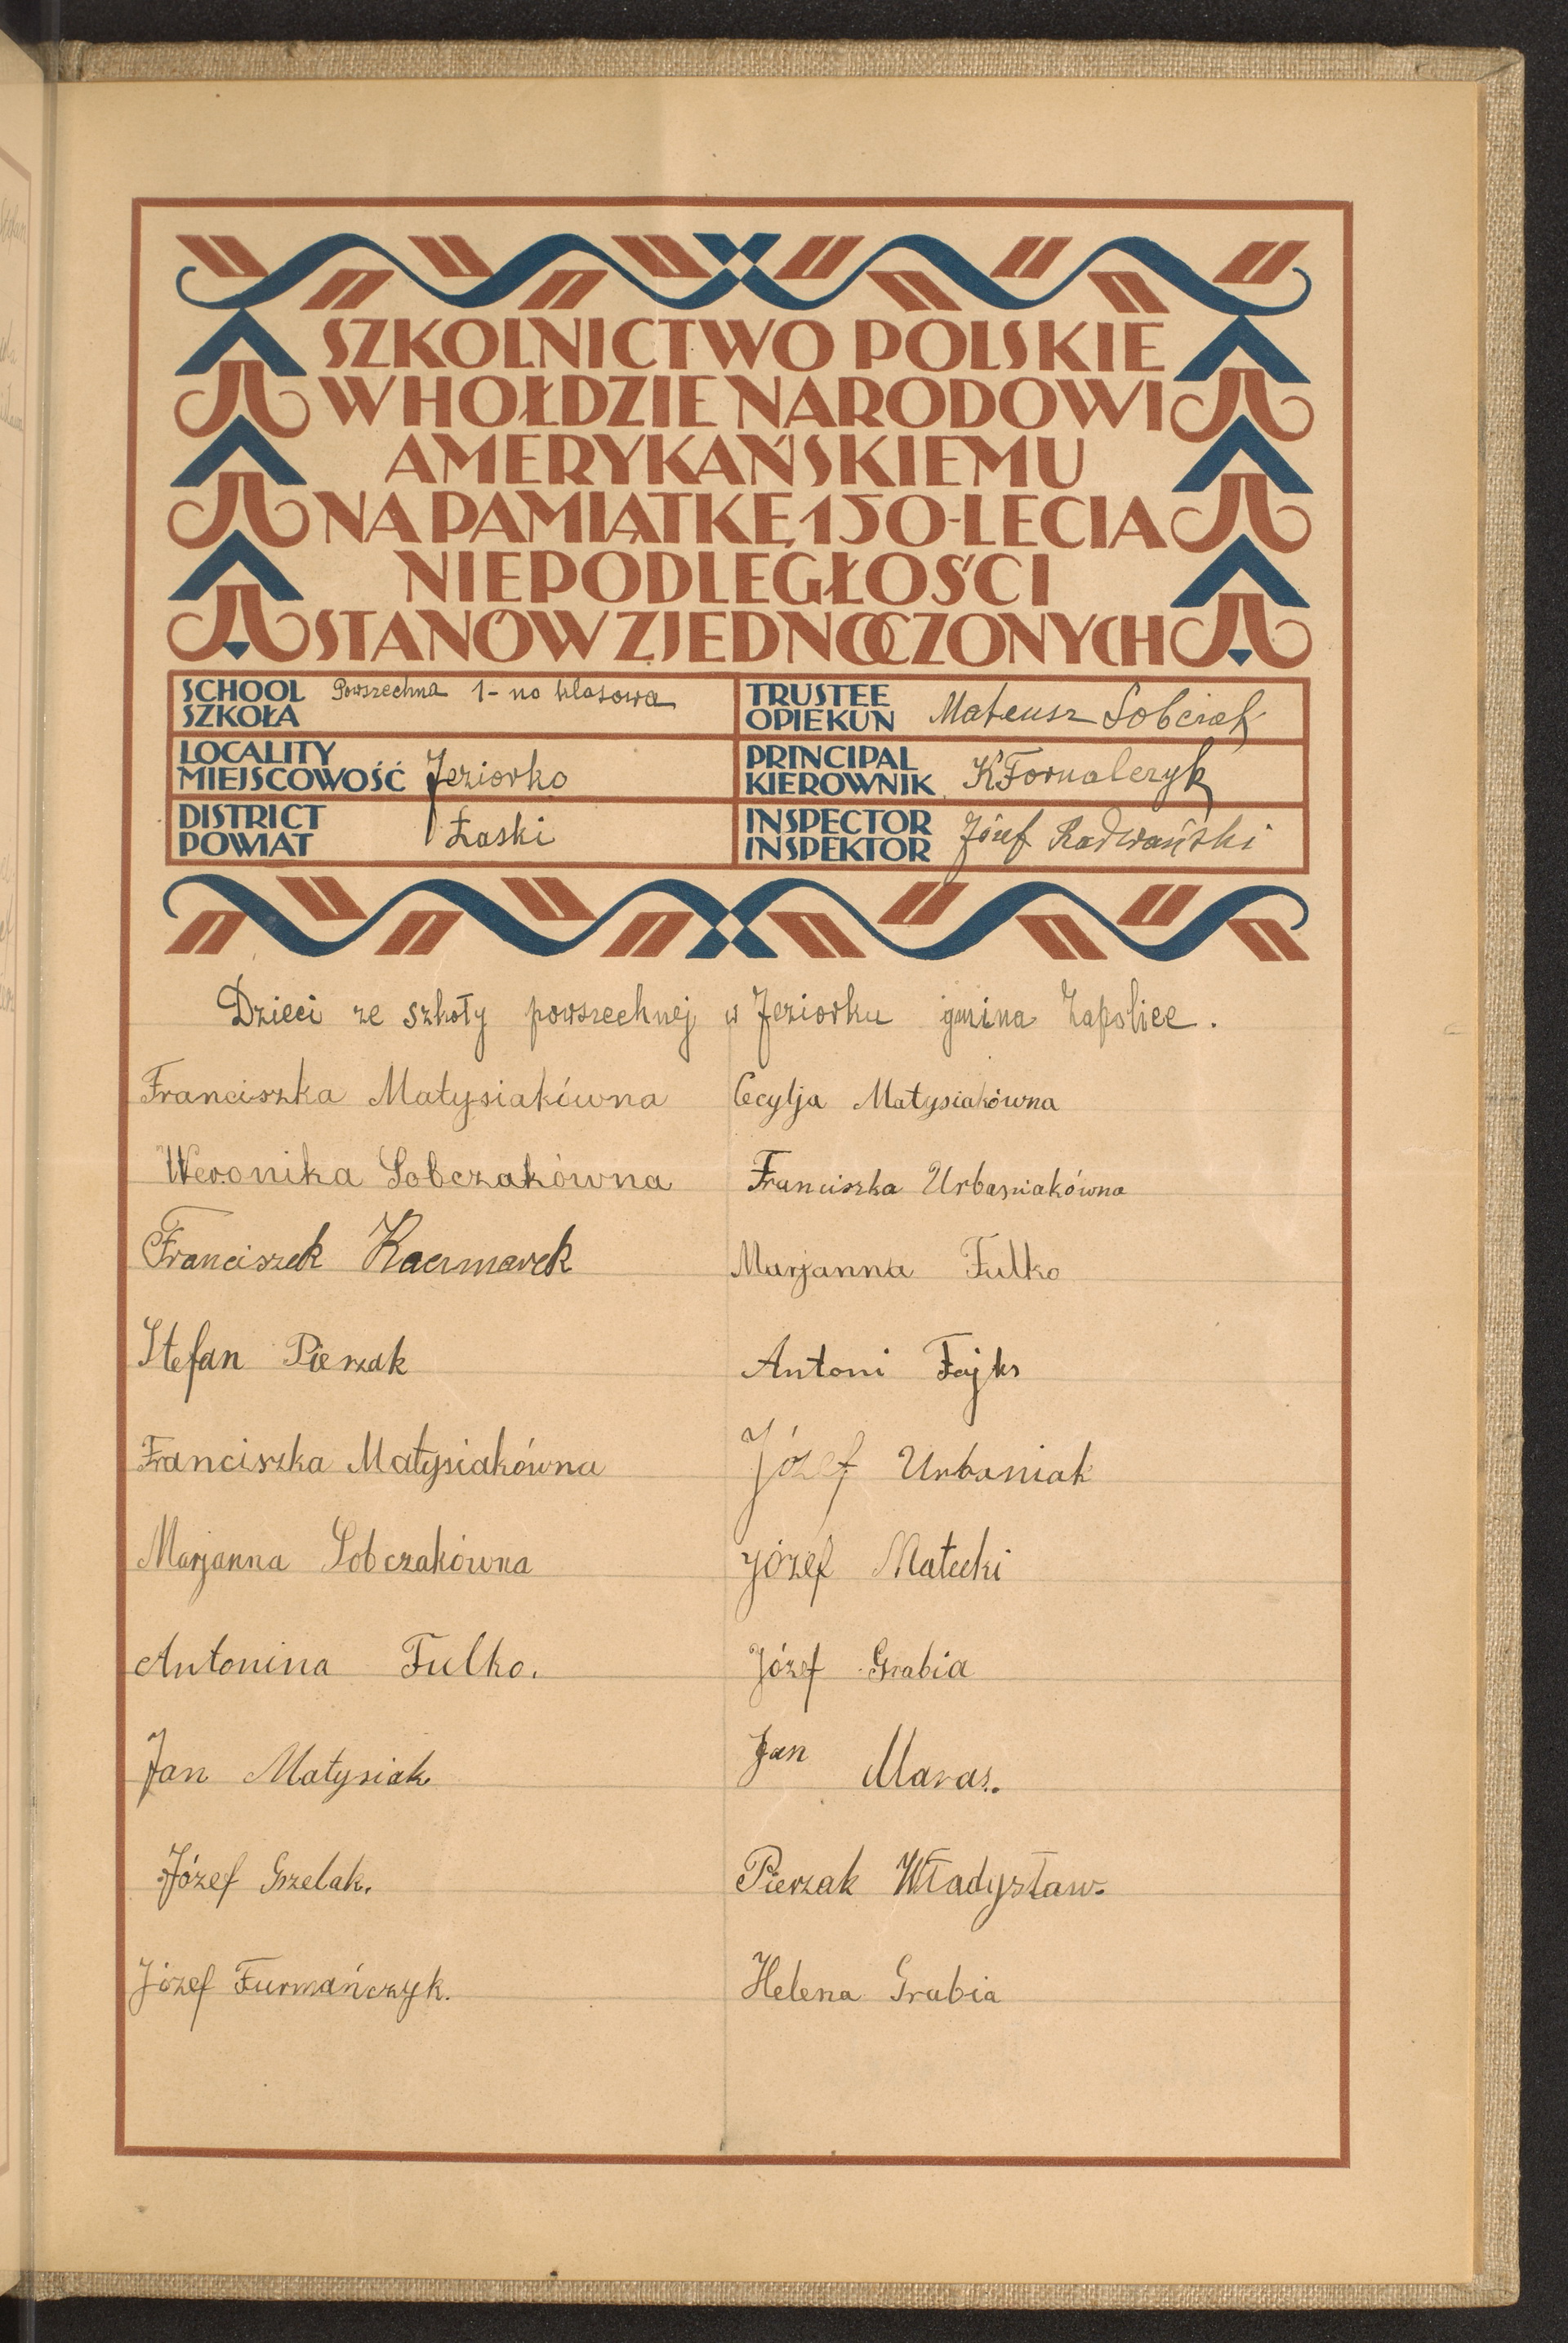 SZKOLNICTWO POLSKIE
W HOŁDZIE NARODOWI
AMERYKAŃSKIEMU
NA PAMIĄTKĘ 150-LECIA
NIEPODLEGŁOŚCI
STANÓW ZJEDNOCZONYCH
SCHOOL
SZKOŁA
Powszechna 1-no klasowa
TRUSTEE
OPIEKUN
Mateusz Sobciak
LOCALITY
MIEJSCOWOŚĆ
Jeziorko
PRINCIPAL
KIEROWNIK
K Fornalczyk
DISTRICT
POWIAT
Łaski
INSPECTOR
INSPEKTOR
Józef Radwański
Dzieci ze szkoły powszechnej w Jeziorku gmina Zapolice.
Franciszka Matysiakówna
Cecylja Matysiakówna
Weronika Sobczakówna
Franciszka Urbaniakówna
Franciszek Kaczmarek
Marjanna Fulko
Stefan Pierzak
Antoni Fajks
Franciszka Matysiakówna
Józef Urbaniak
Marjanna Sobczakówna
Józef Małecki
Antonina Fulko.
Józef Grabia
Jan Matysiak
Jan Maras.
Józef Grzelak.
Pierzak Władysław.
Józef Furmańczyk.
Helena Grabia